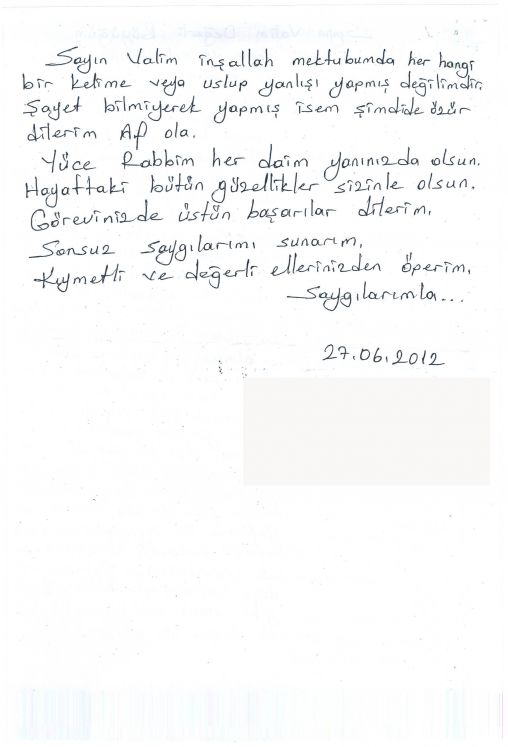 Sayın Valim inşallah mektubumda her hangi
bir kelime veya uslup yanlışı yapmış değilimdir.
Şayet bilmiyerek yapmış isem şimdide özür
dilerim Af ola.
Yüce Rabbim her daim yanınızda olsun.
Hayattaki bütün güzellikler sizinle olsun.
Görevinizde üstün başarılar dilerim.
Sonsuz saygılarımı sunarım.
Kıymetli ve değerli ellerinizden öperim.
Saygılarımla...
27.06.2012